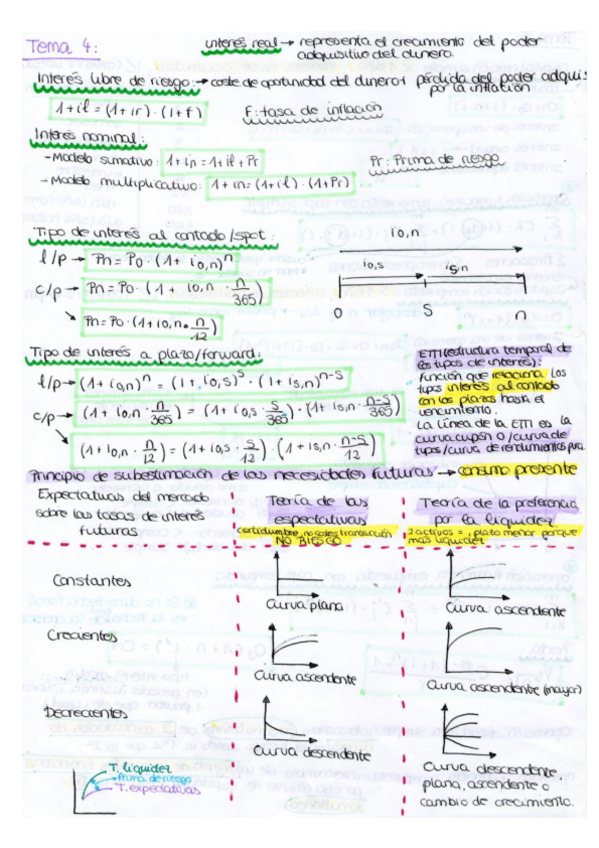 Tema 4:
interés real → representa el crecimiento del poder
adquisitivo del dinero.
Interés libre de riesgo: → coste de oportunidad del dinero + pérdida del poder adquis
por la inflación
1+il = (1+ir)·(1+f)
F: tasa de inflación
Interés nominal:
- Modelo sumativo: 1+in = 1+il+Pr
Pr: Prima de riesgo
- Modelo multiplicativo: 1+in = (1+il)·(1+Pr)
Tipo de interés al contado/spot:
l/p → Pn = P0·(1+i0,n)^n
c/p → Pn = P0·(1+i0,n·n/365)
↘ Pn = P0·(1+i0,n·n/12)
i0,n
i0,s is,n
0 S n
Tipo de interés a plazo/forward:
l/p → (1+i0,n)^n = (1+i0,s)^s·(1+is,n)^n-s
c/p → (1+i0,n·n/365) = (1+i0,s·s/365)·(1+is,n·n-s/365)
↘ (1+i0,n·n/12) = (1+i0,s·s/12)·(1+is,n·n-s/12)
ETI (estructura temporal de
los tipos de interés):
función que relaciona los
tipos interés al contado
con los plazos hasta el
vencimiento.
La línea de la ETI es la
curva cupón 0/curva de
tipos/curva de rendimientos
Principio de subestimación de las necesidades futuras → consumo presente
Expectativas del mercado
sobre las tasas de interés
futuras
Teoría de las
expectativas
certidumbre, no costes transacción
NO RIESGO
Teoría de la preferencia
por la liquidez
2 activos =, plazo menor porque
más liquidez
Constantes
Curva plana
Curva ascendente
Crecientes
Curva ascendente
Curva ascendente (mayor)
Decrecientes
Curva descendente
Curva descendente,
plana, ascendente o
cambio de crecimiento.
T. Liquidez
Prima de riesgo
T. expectativas